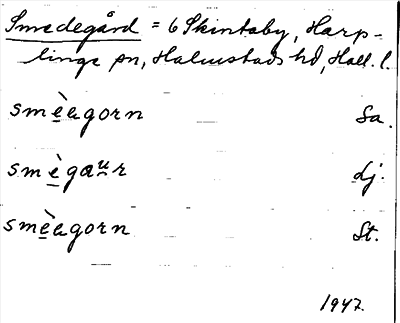 Smedegård = 6 Skintaby, Harp-
linge sn, Halmstads hd, Hall. l.
smèagorn Sa.
smègaur dj.
smèagorn St.
1947.